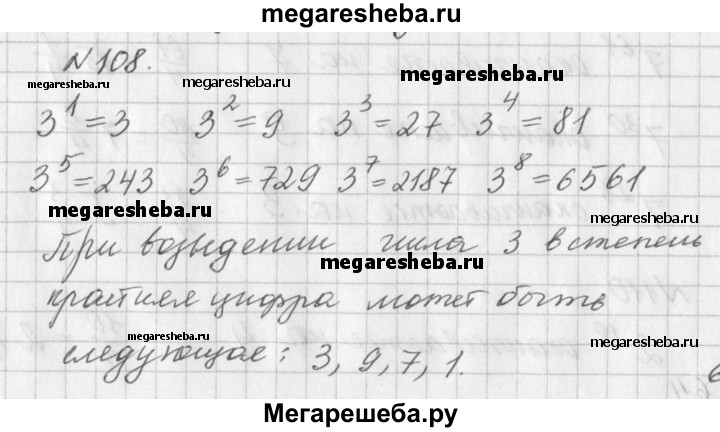 megaresheba.ru
N108.
megaresheba.ru megaresheba.ru megaresheba.ru
3^1=3 3^2=9 3^3=27 3^4=81
3^5=243 3^6=729 3^7=2187 3^8=6561
megaresheba.ru megaresheba.ru
При возведении числа 3 в степень
megaresheba.ru
крайняя цифра может быть
megaresheba.ru megaresheba.ru
следующая: 3, 9, 7, 1.
Мегарешеба.ру